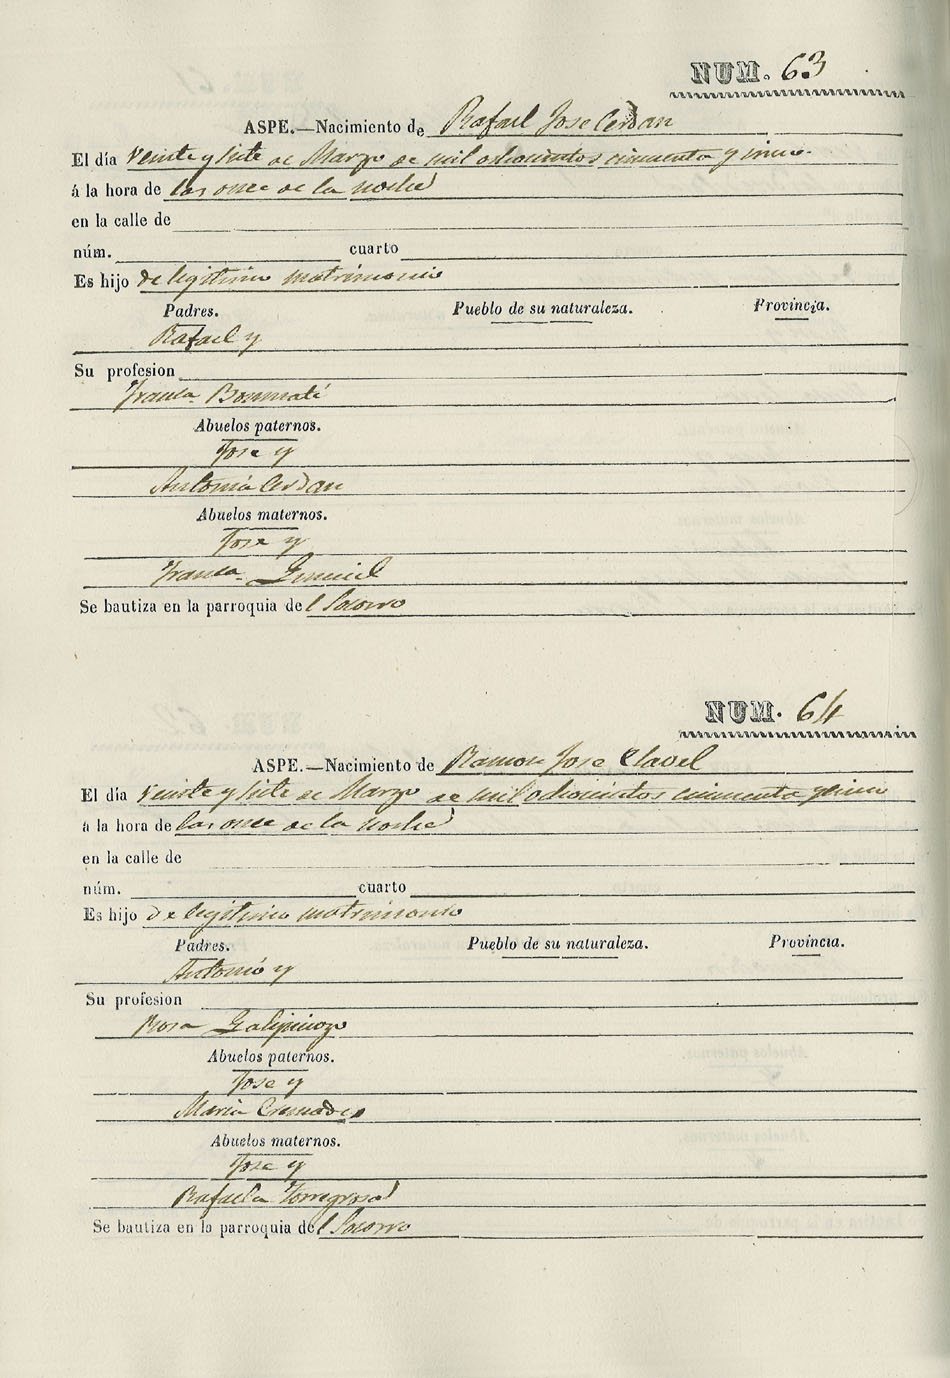 NUM. 63
ASPE.—Nacimiento de Rafael Jose Cerdan
El día veinte y siete de Marzo de mil ochocientos cincuenta y cinco
á la hora de las once de la noche
en la calle de
núm. cuarto
Es hijo de legitimo matrimonio
Padres. Pueblo de su naturaleza. Provincia.
Rafael y
Su profesion
Franca. Bonmati
Abuelos paternos.
Jose y
Antonia Cerdan
Abuelos maternos.
Jose y
Franca.
Se bautiza en la parroquia del Socorro
NUM. 64
ASPE.—Nacimiento de Ramon Jose Clavel
El día veinte y siete de Marzo de mil ochocientos cincuenta y cinco
á la hora de las once de la noche
en la calle de
núm. cuarto
Es hijo de legitimo matrimonio
Padres. Pueblo de su naturaleza. Provincia.
Antonio y
Su profesion
Rosa Galipienzo
Abuelos paternos.
Jose y
Maria Cremades
Abuelos maternos.
Jose y
Rafaela Torregrosa
Se bautiza en la parroquia del Socorro